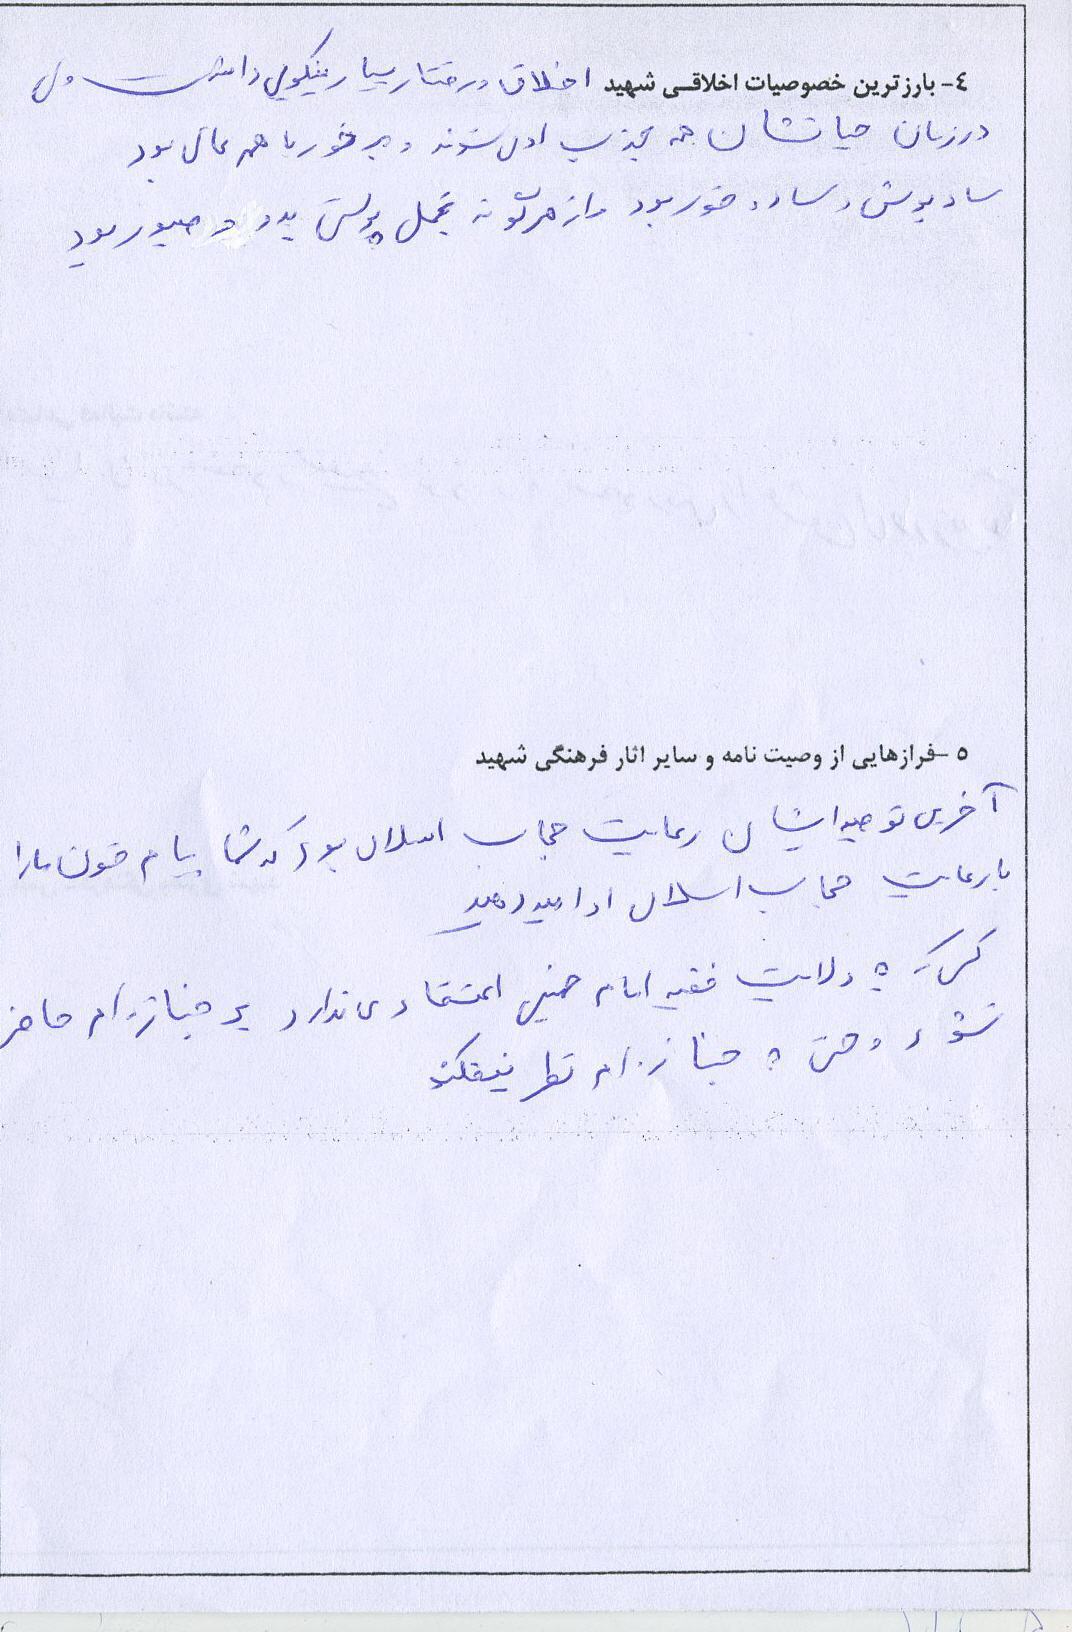 ٤- بارزترین خصوصیات اخلاقی شهید اخلاق و رفتار بسیار نیکویی داشت
در زمان حیاتشان همه مجذب او می شوند و برخورد با همه عالی بود
ساده پوش و ساده خور بود و از هرگونه تجمل پرستی بدور و صبور بود
٥ -فرازهایی از وصیت نامه و سایر اثار فرهنگی شهید
آخرین توصیه ایشان رعایت حجاب اسلامی بود که شما پیام خون ما را
با رعایت حجاب اسلامی ادامه دهید
کسی که به ولایت فقیه امام خمینی اعتقادی ندارد بر جنازه ام حاضر
نشود و حتی به جنازه ام نظر نیفکند